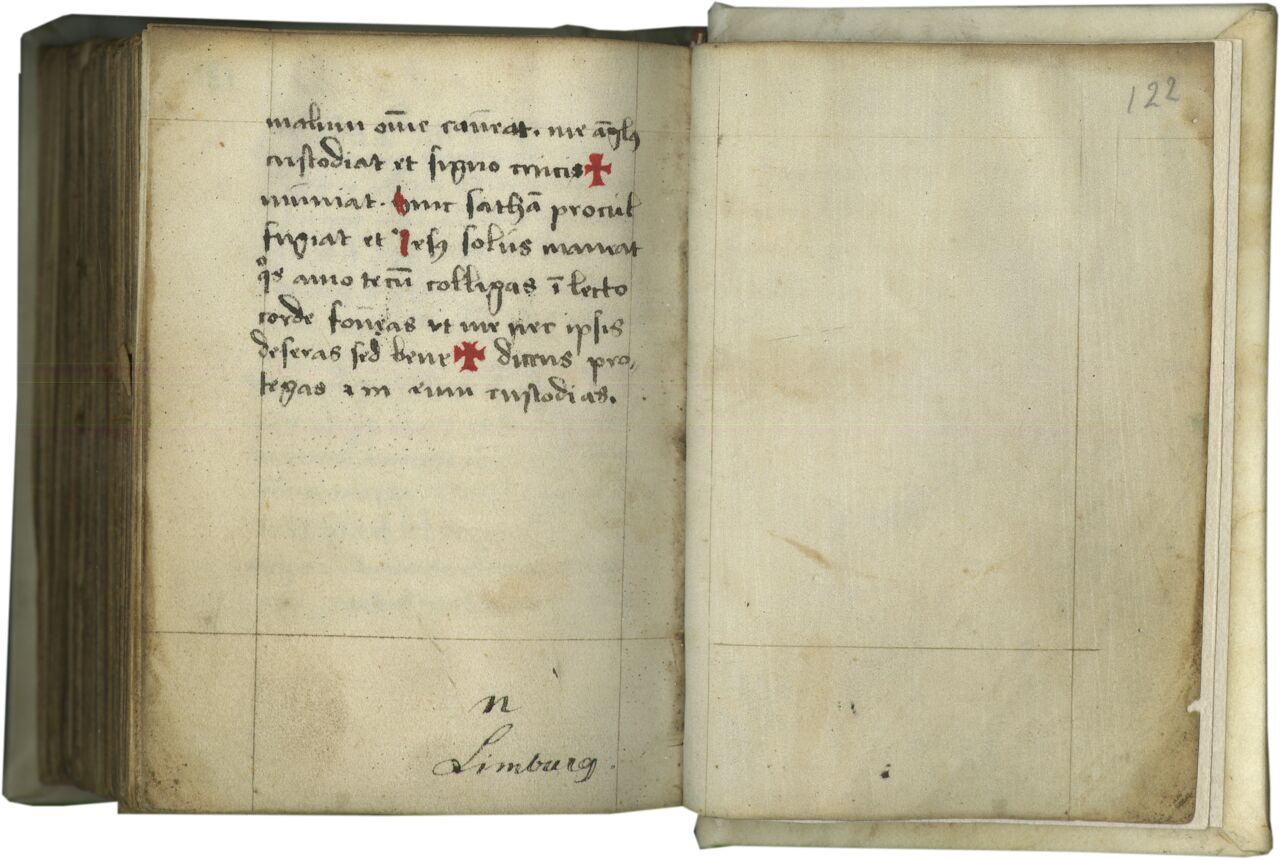 malum om̄e caūeat. me āgl̄s
custodiat et signo crucis ✠
mūniat. hinc sathā procul
fugiat et Iesꝰ solus maneat
q̄s amo tecū colligas ī lecto
corde foūeas ut me nec ipsis
deseras sed bene ✠ dicens pro,
tegas ⁊ in eum custodias.
n
Limburg.
122